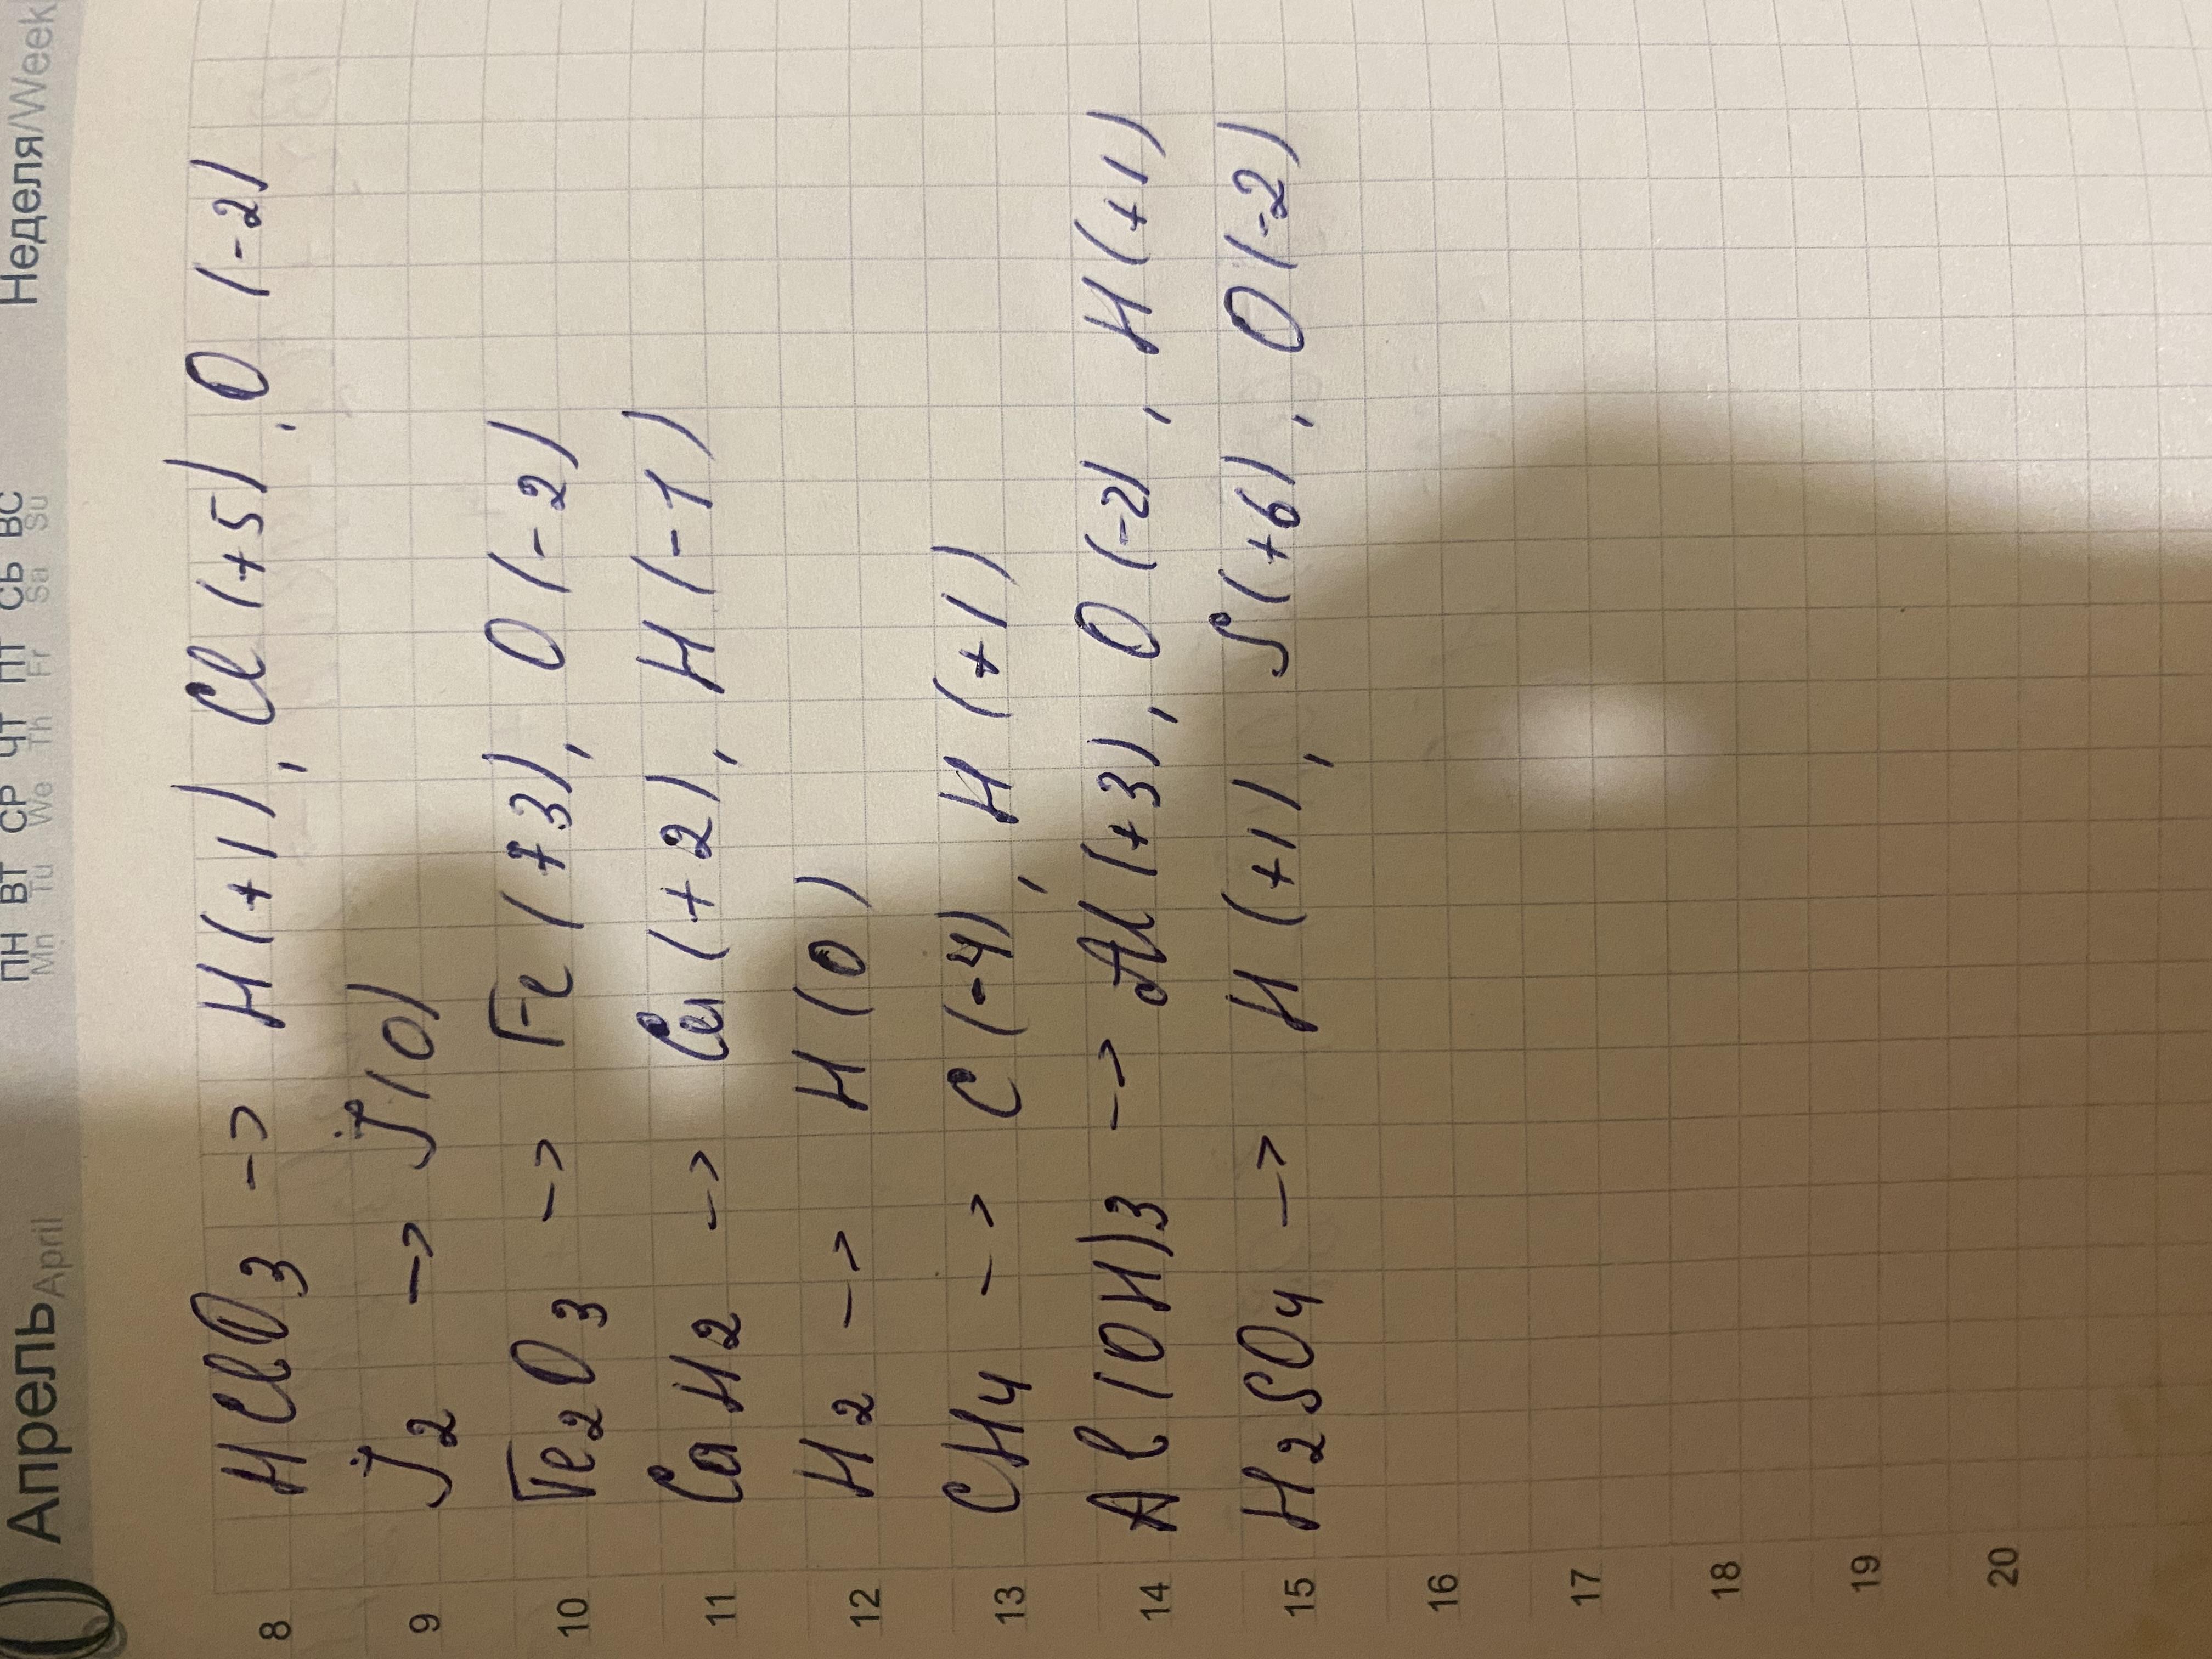 Апрель April ПН ВТ СР ЧТ ПТ СЬ ВС Неделя/Week
Mn Tu We Th Fr Sa Su
8 HClO3 -> H(+1), Cl(+5), O(-2)
9 J2 -> J(0)
10 Fe2O3 -> Fe(+3), O(-2)
11 CaH2 -> Ca(+2), H(-1)
12 H2 -> H(0)
13 CH4 -> C(-4), H(+1)
14 Al(OH)3 -> Al(+3), O(-2), H(+1)
15 H2SO4 -> H(+1), S(+6), O(-2)
16
17
18
19
20